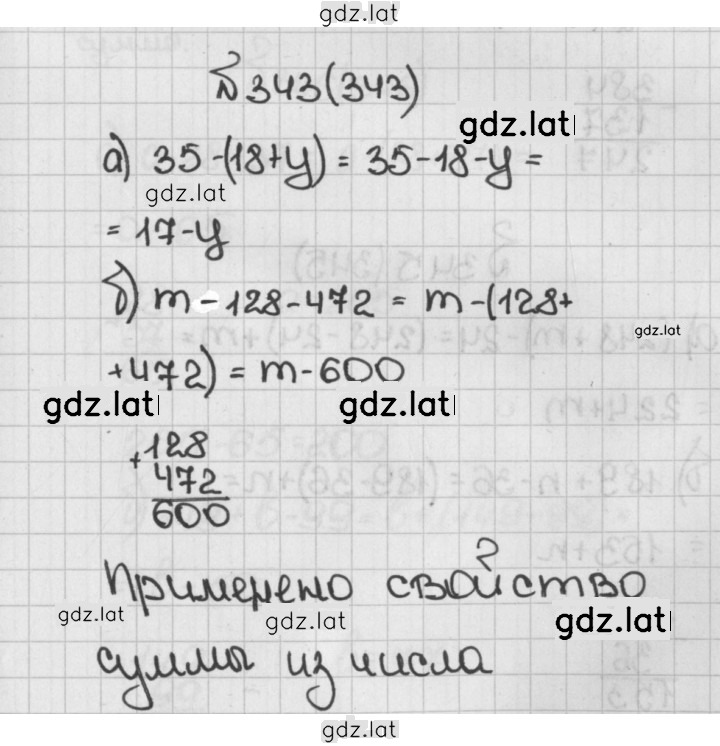 gdz.latl
№343(343)
gdz.latl
а) 35-(18+y) = 35-18-y =
gdz.latl
= 17-y
б) m-128-472 = m-(128+
gdz.latl
+472) = m-600
gdz.latl gdz.latl
+128
472
600
Применено свойство
gdz.latl gdz.latl gdz.latl
суммы из числа
gdz.latl